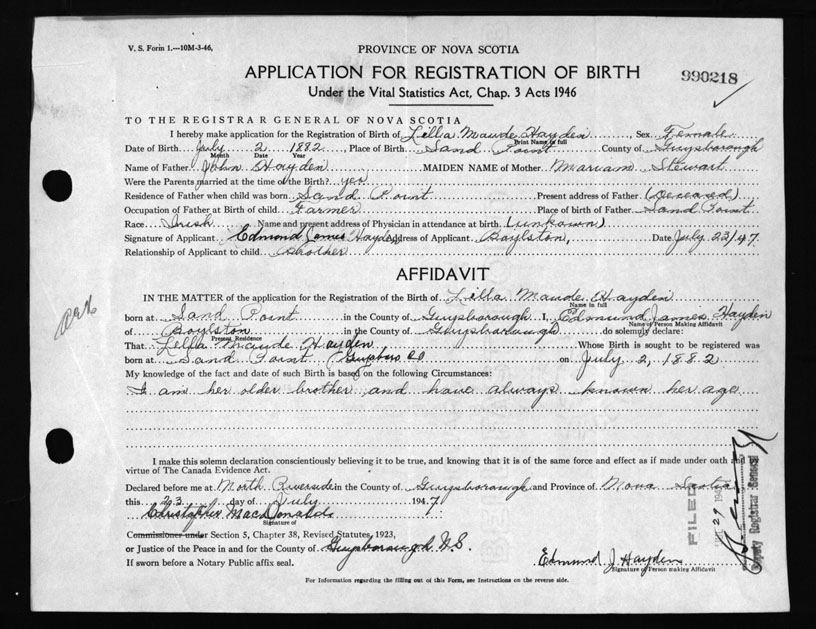 V. S. Form 1.—10M-3-46.
PROVINCE OF NOVA SCOTIA
APPLICATION FOR REGISTRATION OF BIRTH
990218
Under the Vital Statistics Act, Chap. 3 Acts 1946
TO THE REGISTRAR GENERAL OF NOVA SCOTIA
I hereby make application for the Registration of Birth of Lilla Maude Hayden, Sex Female
Print Name in full
Date of Birth July 2 1882, Place of Birth Sand Point County of Guysborough
Month Date Year
Name of Father John Hayden MAIDEN NAME of Mother Mariam Stewart
Were the Parents married at the time of the Birth? yes
Residence of Father when child was born Sand Point Present address of Father (Deceased)
Occupation of Father at Birth of child Farmer Place of birth of Father Sand Point
Race Irish Name and present address of Physician in attendance at birth (unkown)
Signature of Applicant Edmond James Hayden Address of Applicant Boylston, Date July 23/47
Relationship of Applicant to child Brother
AFFIDAVIT
IN THE MATTER of the application for the Registration of the Birth of Lilla Maude Hayden
Name in full
born at Sand Point in the County of Guysborough I, Edmund James Hayden
Name of Person Making Affidavit
of Boylston in the County of Guysborough do solemnly declare:
Present Residence
That Lella Maude Hayden Whose Birth is sought to be registered was
born at Sand Point Guysboro Co on July 2, 1882
My knowledge of the fact and date of such Birth is based on the following Circumstances:
I am her older brother and have always known her age
I make this solemn declaration conscientiously believing it to be true, and knowing that it is of the same force and effect as if made under oath and in
virtue of The Canada Evidence Act.
Declared before me at North Riverside in the County of Guysborough and Province of Nova Scotia
this 23 day of July 1947
Christopher MacDonald
Signature of
Commissioner under Section 5, Chapter 38, Revised Statutes, 1923,
or Justice of the Peace in and for the County of Guysborough N.S.
If sworn before a Notary Public affix seal.
Edmund J Hayden
Signature of Person making Affidavit
FILED
29 194
Deputy Registrar General
For Information regarding the filling out of this Form, see Instructions on the reverse side.